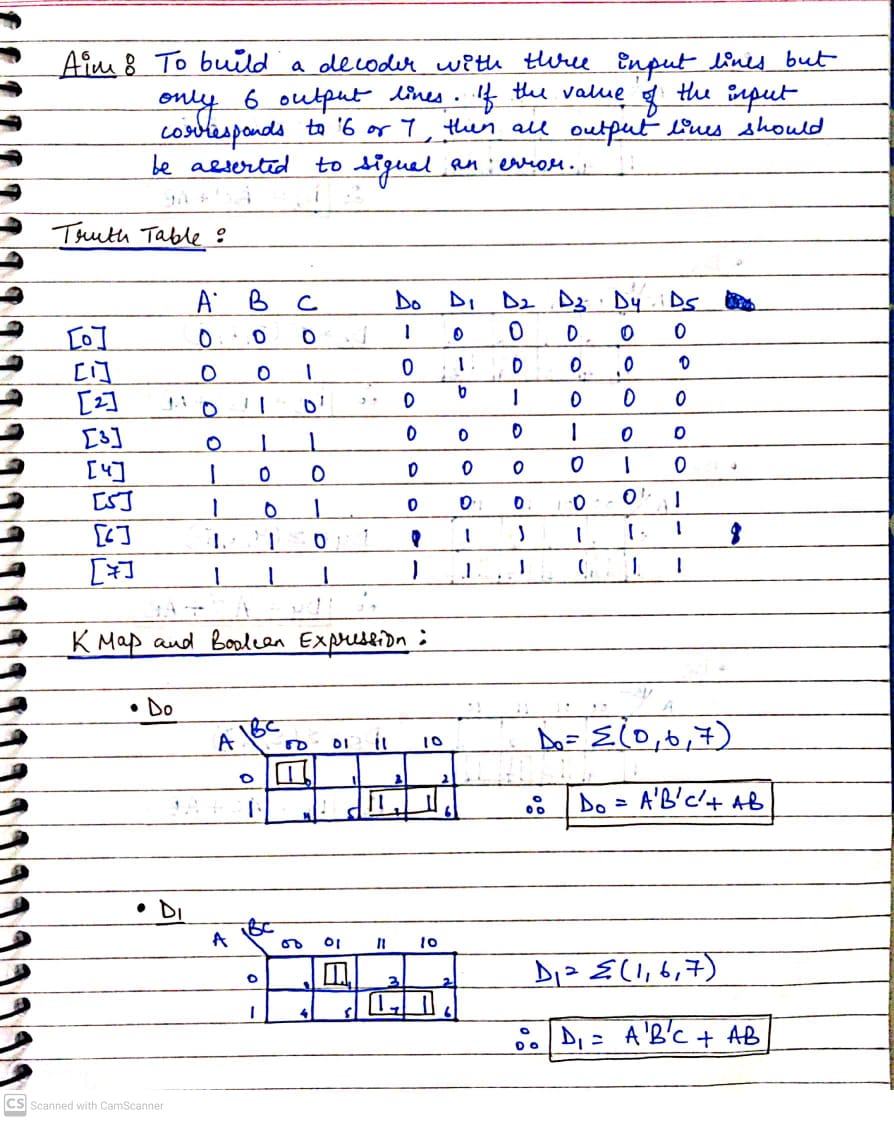 Aim : To build a decoder with three input lines but
only 6 output lines. If the value of the input
corresponds to 6 or 7, then all output lines should
be asserted to signal an error.
Truth Table :
A B C D0 D1 D2 D3 D4 D5
[0] 0 0 0 1 0 0 0 0 0
[1] 0 0 1 0 1 0 0 0 0
[2] 0 1 0 0 0 1 0 0 0
[3] 0 1 1 0 0 0 1 0 0
[4] 1 0 0 0 0 0 0 1 0
[5] 1 0 1 0 0 0 0 0 1
[6] 1 1 0 1 1 1 1 1
[7] 1 1 1 1 1 1 1 1 1
K Map and Boolean Expression :
• D0
A \ BC 00 01 11 10
0 1 0 1 3 2
1 4 5 1 7 1 6
D0 = Σ(0,6,7)
∴ D0 = A'B'C' + AB
• D1
A \ BC 00 01 11 10
0 0 1 1 3 2
1 4 5 1 7 1 6
D1 = Σ(1,6,7)
∴ D1 = A'B'C + AB
CS Scanned with CamScanner